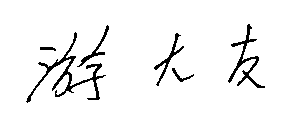 游大友